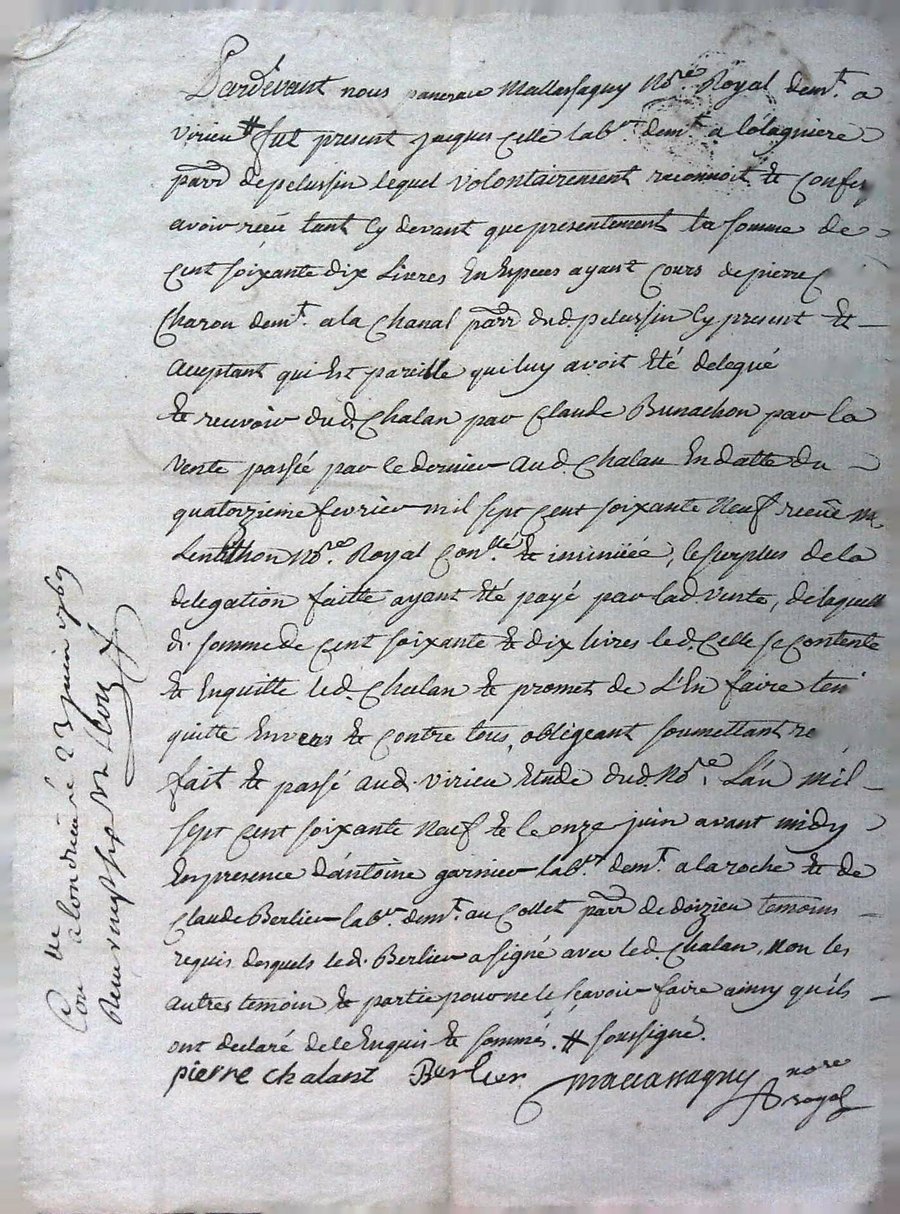 Pardevant nous pancrace Mallassagny No.re Royal dem.t a
virieu # fut present jacques Celle lab.r dem.t a lolagniere
parr de pelussin lequel volontairement reconnoit & confes
avoir reçu tant cy devant que presentement la somme de
cent soixante dix Livres En Especes ayant cours de pierre
Chalan dem.t a la Chanal parr dud. pelussin cy present &
aceptant qui Est pareille qui luy avoit Eté delegué
& recevoir dud. Chalan par Claude Bunachon par la
vente passée par le dernier aud. Chalan En datte du
quatorzieme fevrier mil sept cent soixante Neuf receue Me
Lentilhon No.re Royal Con.llé & insinüée, le surplus de la
delegation faitte ayant Eté payé par lad. vente, de laquell
d. somme de cent soixante & dix livres led. Celle se contente
& Enquitte led. Chalan & promet de L'En faire teni
quitte Envers & contre tous, obligeant soumettant re
fait & passé aud. virieu Etude dud. No.re L'an mil
sept cent soixante Neuf & le onze juin avant midy
En presence d'antoine garnier lab.r dem.t a la roche & de
Claude Berlier lab.r dem.t au Collet parr de doizieu temoins
requis desquels led. Berlier a signé avec led. Chalan, non les
autres temoin & partie pour ne le sçavoir faire ainsy qu'ils
ont declaré de ce Enquis & sommés. # soussigné.
pierre chalant Berlier Mallassagny nore
royal
Con.lle a Condrieu le 23 juin 1769